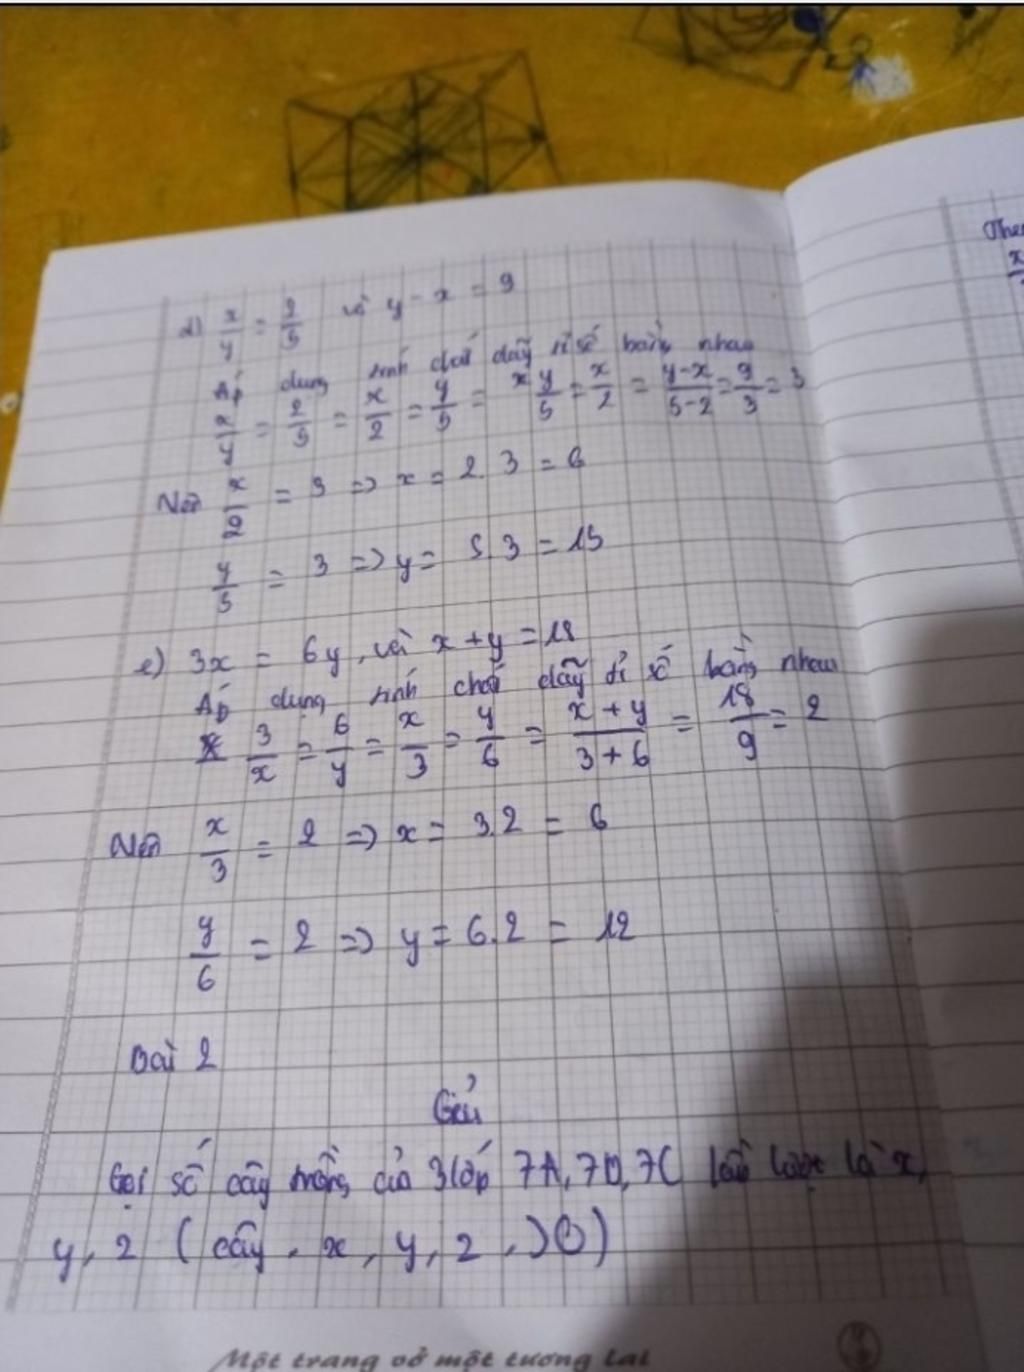 d) x/y = 2/5 và y - x = 9
Áp dụng tính chất dãy tỉ số bằng nhau
x/y = 2/5 = x/2 = y/5 = y/5 = x/2 = y-x/5-2 = 9/3 = 3
Nên x/2 = 3 => x = 2.3 = 6
y/5 = 3 => y = 5.3 = 15
e) 3x = 6y, và x + y = 18
Áp dụng tính chất dãy tỉ số bằng nhau
3/x = 6/y = x/3 = y/6 = x+y/3+6 = 18/9 = 2
Nên x/3 = 2 => x = 3.2 = 6
y/6 = 2 => y = 6.2 = 12
Bài 2
Giải
Gọi số cây trồng của 3 lớp 7A, 7B, 7C lần lượt là x,
y, z (cây, x, y, z, >0)
Một trang vở một tương lai